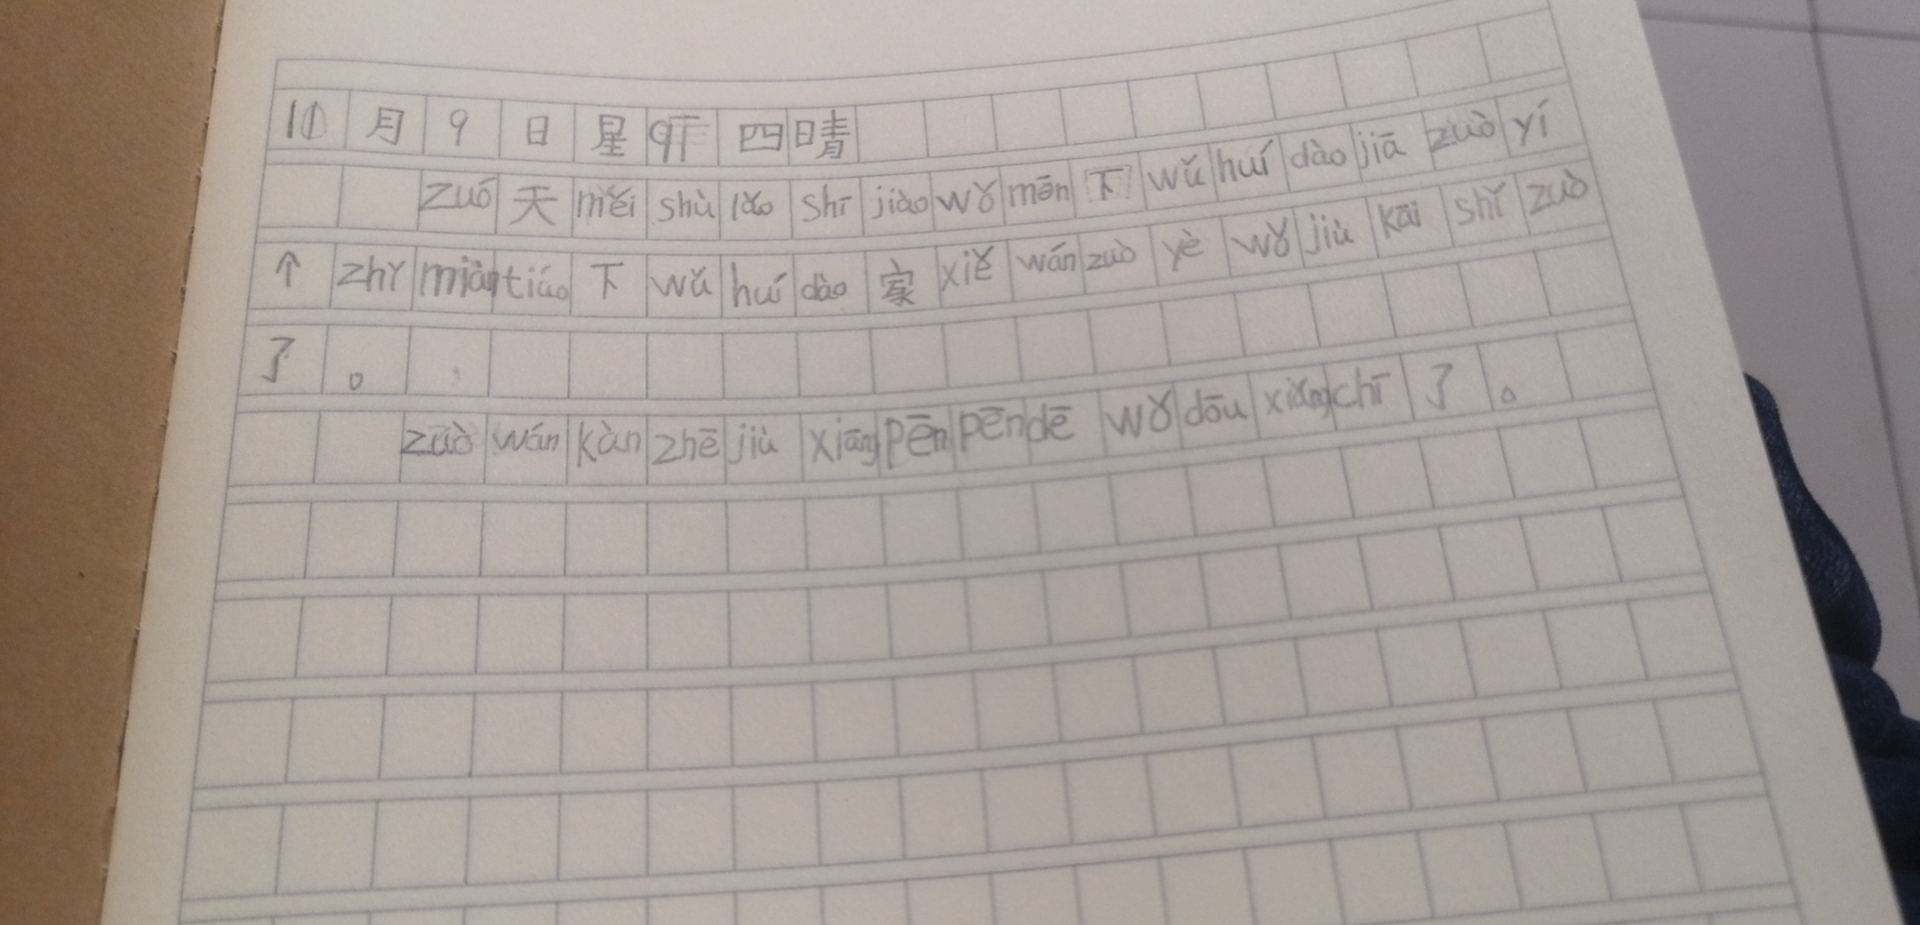 10月9日星期四晴
zuó天měi shù lǎo shī jiào wǒ mēn下wǔ huí dào jiā zuò yí
个zhǐ miàn tiáo下wǔ huí dào家xiě wán zuò yè wǒ jiù kāi shǐ zuò
了。
zuò wán kàn zhē jiù xiāng pēn pēn dē wǒ dōu xiǎng chī了。